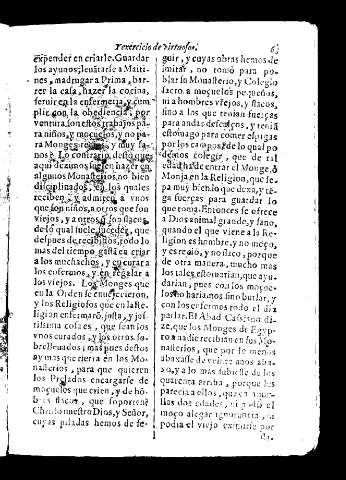 Y exercicio de virtuosos. 63
expender en criarle. Guardar
los ayunos, leuãtarse a Maiti-
nes, madrugar a Prima, bar-
rer la casa, hazer la cocina,
seruir en la enfermeria, y cum
plir con la obediencia, por
ventura, son estos trabajos pa-
ra niños, y moçuelos, y no pa-
ra Monges y muy sa-
nos? Lo contrario desto es
aqui dezimos suelen hazer en
algunos Monasterios, no bien
disciplinados, en los quales
reciben, y admiten a vnos
que son niños, a otros que son
viejos, y a otros q̃ son flacos,
de lo qual suele suceder, que
despues de recibidos, todo lo
mas del tiempo gasta en criar
a los muchachos, y en curar a
los enfermos, y en regalar a
los viejos. Los Monges que
en la Orden se enuegecieron,
y los Religiosos que en la Re-
ligion enfermarõ, justa, y jus-
tissima cosa es, que sean los
vnos curados, y los otros so-
brelleuados; mas pues destos
ay mas que tierra en los Mo-
nasterios, para que quieren
los Prelados encargarse de
moçuelos que crien, y de hõ-
bres flacos, que soporten?
Christo nuestro Dios, y Señor,
cuyas pisadas hemos de se-
guir, y cuyas obras hemos de
imitar, no tomò para po-
blar su Monasterio, y Colegio
sacro, a moçuelos pequeños,
ni a hombres viejos, y flacos,
sino a los que tenian fuerças
para andar descalços, y teniã
estomago para comer espigas
por los campos: de lo qual po
demos colegir, que de tal
edad ha de entrar el Monge, ò
Monja en la Religion, que se-
pa muy bien lo que dexa, y tẽ-
ga fuerças para guardar lo
que toma. Entonces se ofrece
a Dios animal grande, y sano,
quando el que viene a la Re-
ligion es hombre, y no moço,
y es rezio, y no flaco, porque
de otra manera, mucho mas
los tales, estoruarian, que ayu-
darian, pues con los moçue-
los no hariamos sino burlar, y
con los enfermos todo el dia
parlar. El Abad Casiano di-
ze, que los Monges de Egyp-
to a nadie recibian en sus Mo-
nasterios, que por lo menos
abaxasse de veinte años aba-
xo, y a lo mas subiesse de los
quarenta arriba, porque les
parecia a ellos, que en aque-
llas dos edades, ni podia el
moço alegar ignorancia, ni
podia el viejo escusarse por